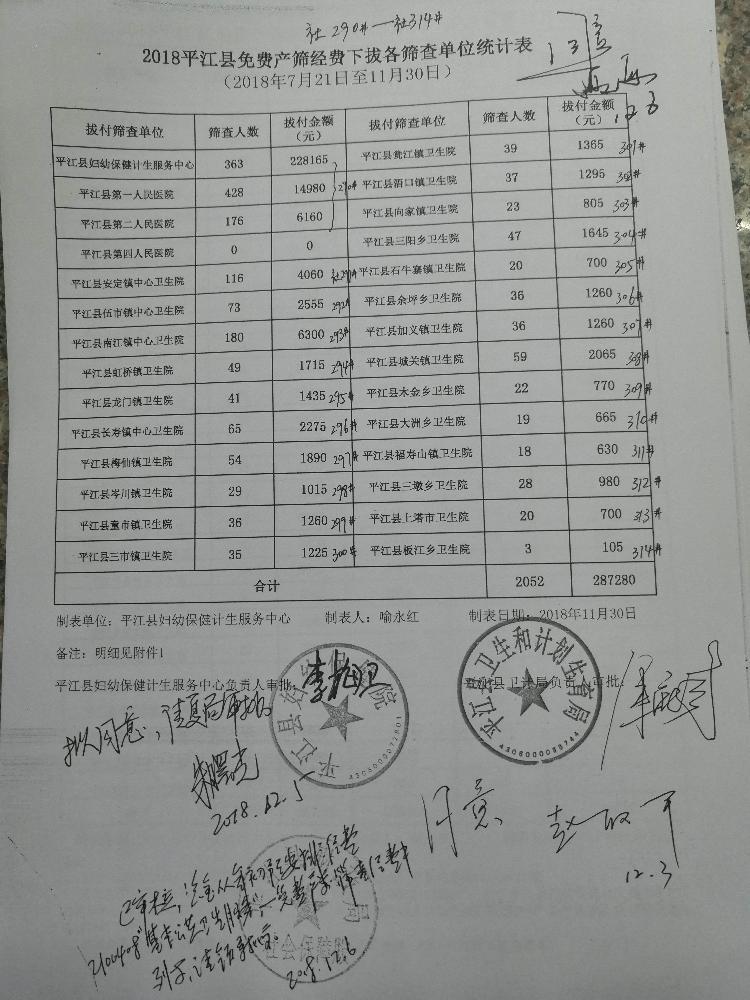 社290#—社314#
2018平江县免费产筛经费下拔各筛查单位统计表
（2018年7月21日至11月30日）
同意
12.3
拔付筛查单位 筛查人数 拔付金额（元） 拔付筛查单位 筛查人数 拔付金额（元）
平江县妇幼保健计生服务中心 363 228165 平江县瓮江镇卫生院 39 1365 301#
平江县第一人民医院 428 14980 290# 平江县浯口镇卫生院 37 1295 302#
平江县第二人民医院 176 6160 平江县向家镇卫生院 23 805 303#
平江县第四人民医院 0 0 平江县三阳乡卫生院 47 1645 304#
平江县安定镇中心卫生院 116 4060 社291# 平江县石牛寨镇卫生院 20 700 305#
平江县伍市镇中心卫生院 73 2555 292# 平江县余坪乡卫生院 36 1260 306#
平江县南江镇中心卫生院 180 6300 293# 平江县加义镇卫生院 36 1260 307#
平江县虹桥镇卫生院 49 1715 294# 平江县城关镇卫生院 59 2065 308#
平江县龙门镇卫生院 41 1435 295# 平江县木金乡卫生院 22 770 309#
平江县长寿镇中心卫生院 65 2275 296# 平江县大洲乡卫生院 19 665 310#
平江县梅仙镇卫生院 54 1890 297# 平江县福寿山镇卫生院 18 630 311#
平江县岑川镇卫生院 29 1015 298# 平江县三墩乡卫生院 28 980 312#
平江县童市镇卫生院 36 1260 299# 平江县上塔市卫生院 20 700 313#
平江县三市镇卫生院 35 1225 300# 平江县板江乡卫生院 3 105 314#
合计 2052 287280
制表单位：平江县妇幼保健计生服务中心 制表人：喻永红 制表日期：2018年11月30日
备注：明细见附件1
平江县妇幼保健计生服务中心负责人审批： 平江县卫计局负责人审批：
平江县妇幼保健院
平江县卫生和计划生育局
拟同意，请夏局审批
2018.12.5
同意
12.3
已审核，
2100408"基本公共卫生服务"
列支，请领导批示。
2018.12.6